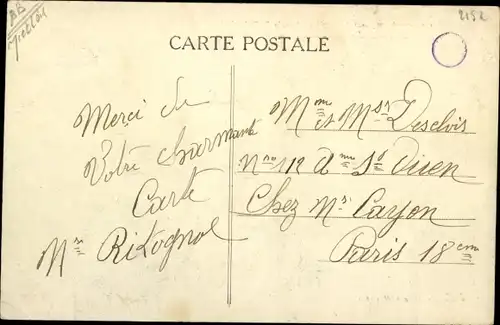 2152
CARTE POSTALE
Merci de
Votre charmante
Carte
Mr Rikognol
Mme et Msr Desclois
Nro 112 Ame St Ouen
Chez Mr Cayon
Paris 18eme